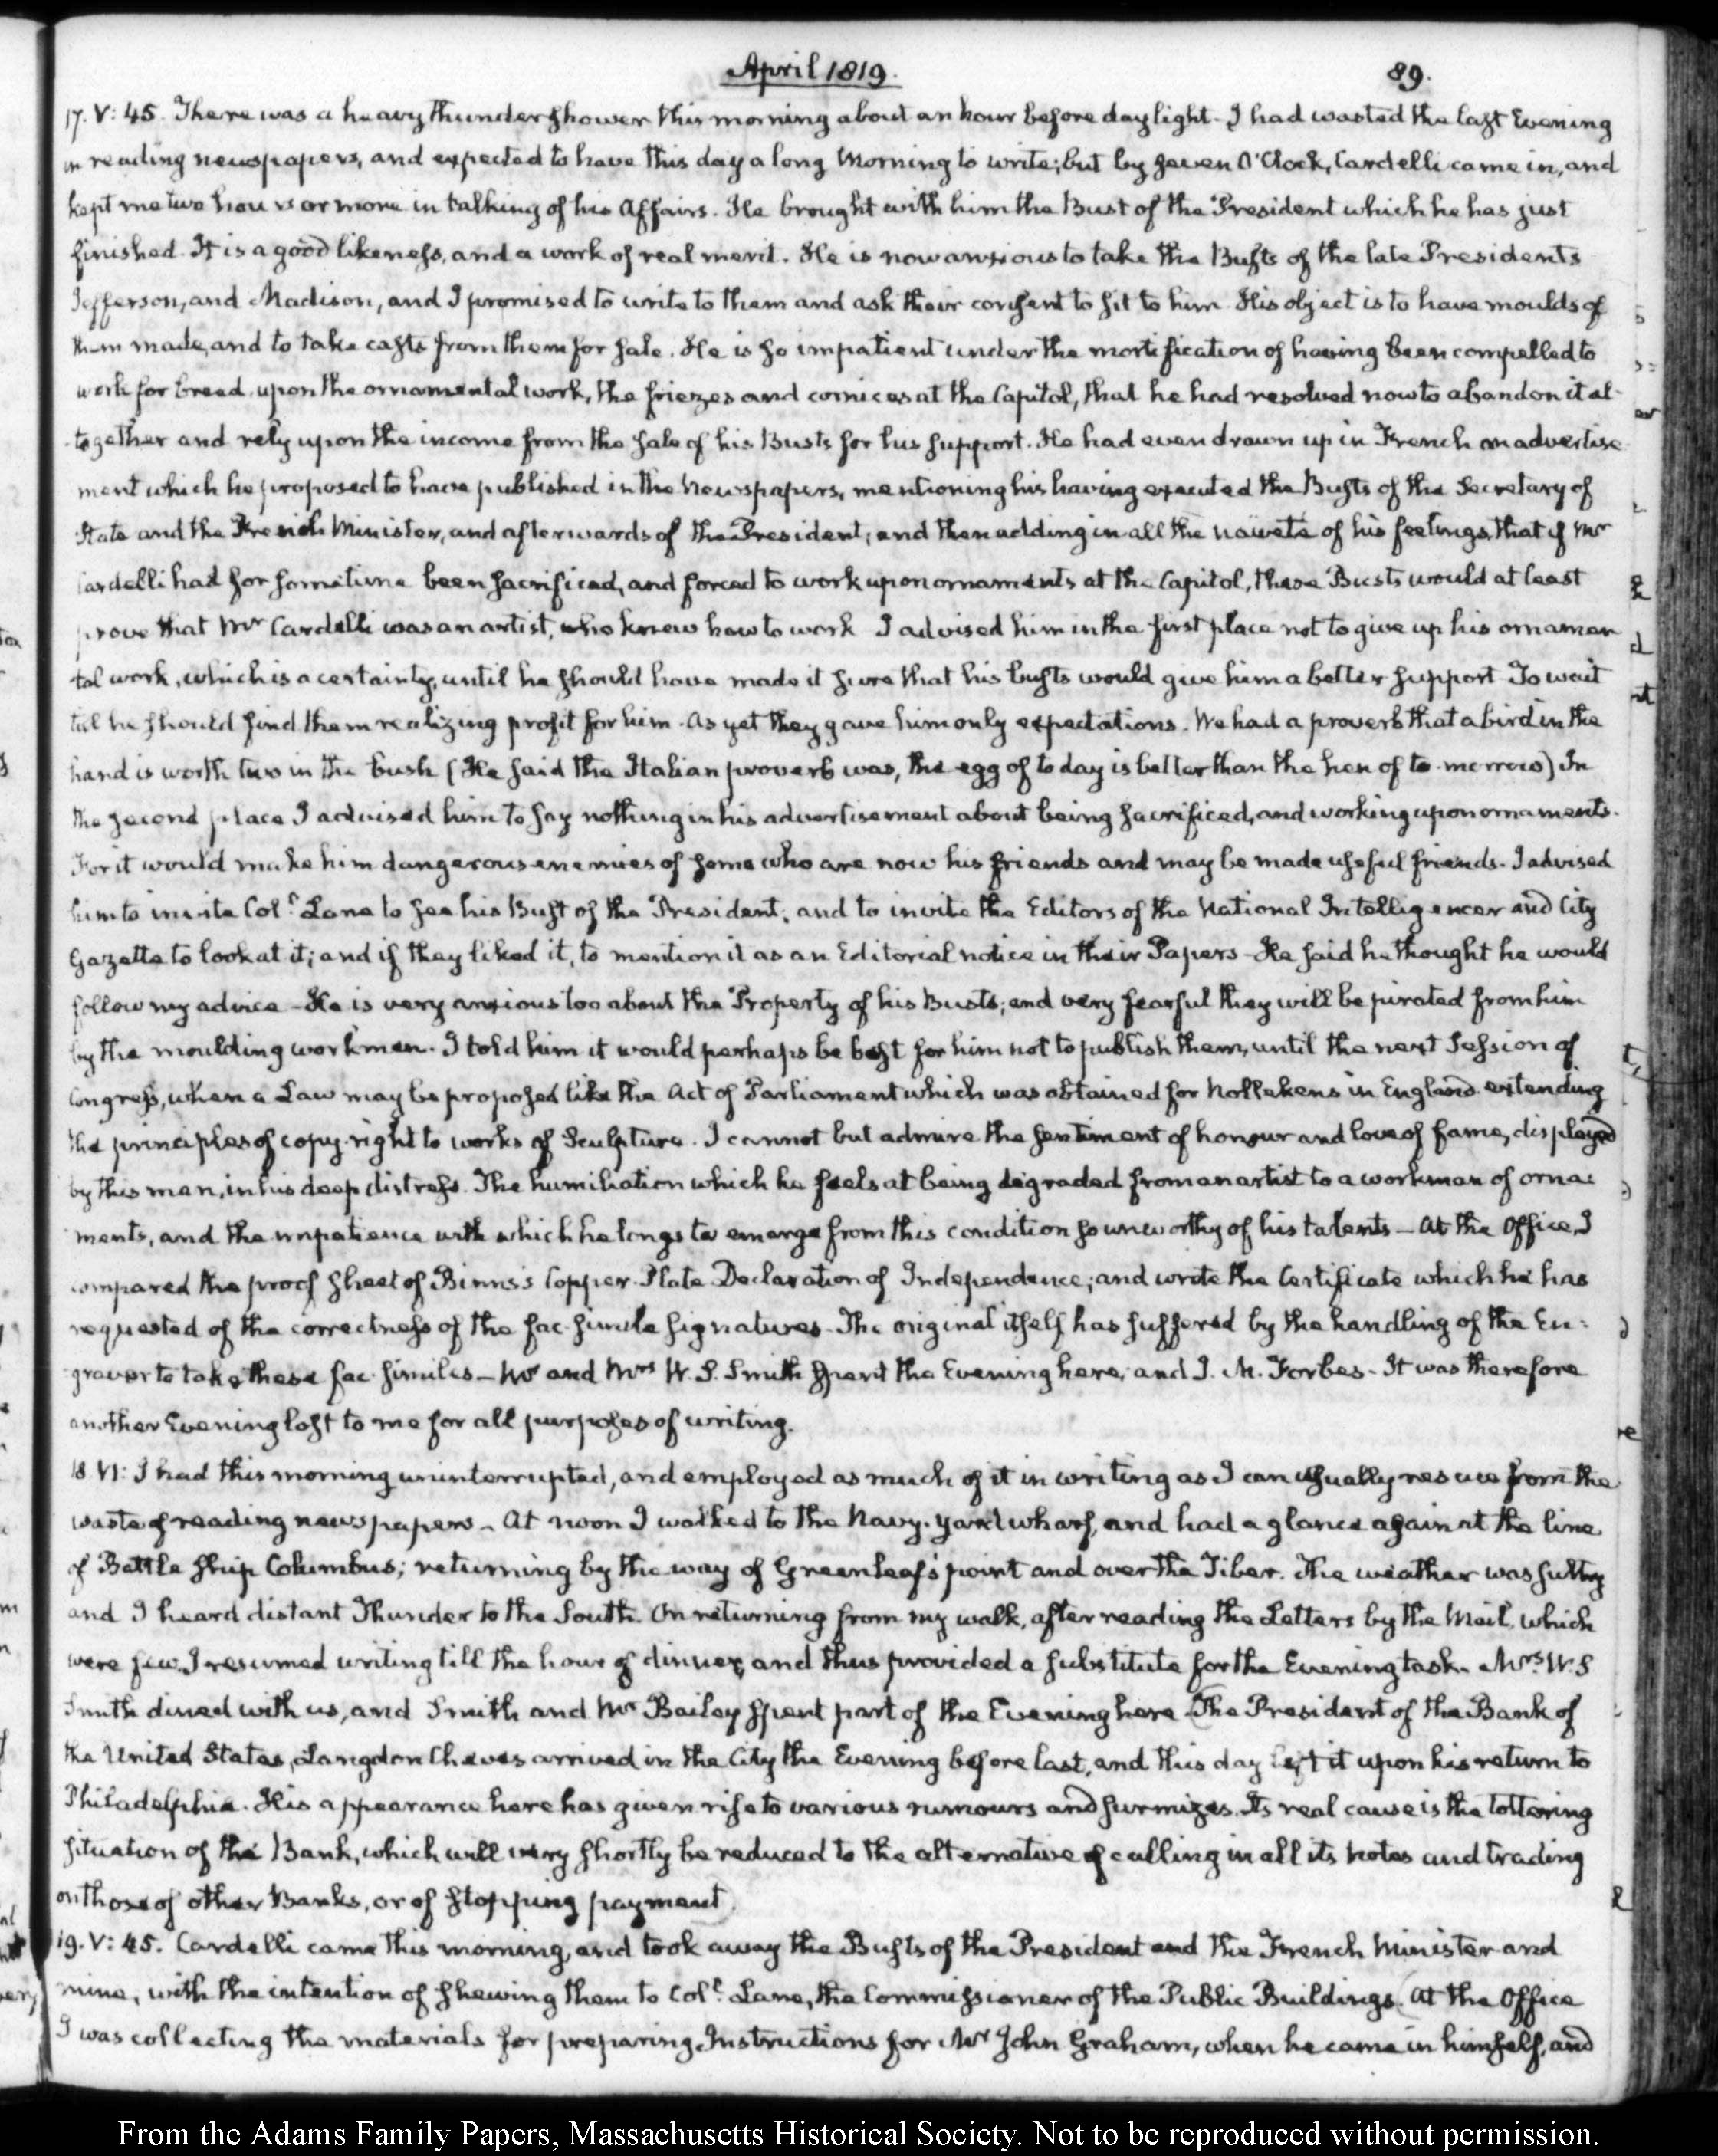 April 1819.
89.
17. V: 45. There was a heavy thunder shower this morning about an hour before day light. I had wasted the last Evening
in reading newspapers, and expected to have this day a long Morning to write; but by seven O'Clock, Cardelli came in, and
kept me two hours or more in talking of his Affairs. He brought with him the Bust of the President which he has just
finished. It is a good likeness, and a work of real merit. He is now anxious to take the Busts of the late Presidents
Jefferson, and Madison, and I promised to write to them and ask their consent to sit to him. His object is to have moulds of
them made, and to take casts from them for sale. He is so impatient under the mortification of having been compelled to
work for bread, upon the ornamental work, the friezes and cornices at the Capitol, that he had resolved now to abandon it al-
together and rely upon the income from the sale of his Busts for his support. He had even drawn up in French an advertise
ment which he proposed to have published in the Newspapers, mentioning his having executed the Busts of the Secretary of
State and the French Minister, and afterwards of the President; and then adding in all the naiveté of his feelings, that if Mr
Cardelli had for sometime been sacrificed, and forced to work upon ornaments at the Capitol, these Busts would at least
prove that Mr Cardelli was an artist, who knew how to work I advised him in the first place not to give up his ornamen
tal work, which is a certainty, until he should have made it sure that his busts would give him a better support To wait
till he should find them realizing profit for him. As yet they gave him only expectations. We had a proverb that a bird in the
hand is worth two in the bush (He said the Italian proverb was, the egg of to day is better than the hen of to-morrow) In
the second place I advised him to say nothing in his advertisement about being sacrificed, and working upon ornaments.
For it would make him dangerous enemies of some who are now his friends and may be made useful friends. I advised
him to invite Coll. Lane to see his Bust of the President; and to invite the Editors of the National Intelligencer and City
Gazette to look at it; and if they liked it, to mention it as an Editorial notice in their Papers - He said he thought he would
follow my advice - He is very anxious too about the Property of his Busts; and very fearful they will be pirated from him
by the moulding workmen. I told him it would perhaps be best for him not to publish them, until the next Session of
Congress, when a Law may be proposed like the Act of Parliament which was obtained for Nollekens in England extending
the principles of copy-right to works of Sculpture. I cannot but admire the sentiment of honour and love of fame, displayed
by this man, in his deep distress. The humiliation which he feels at being degraded from an artist to a workman of orna:
ments, and the impatience with which he longs to emerge from this condition so unworthy of his talents - At the Office, I
compared the proof sheet of Binns's Copper-Plate Declaration of Independence; and wrote the Certificate which he has
requested of the correctness of the fac-simile signatures - The original itself has suffered by the handling of the En:
graver to take these fac-similes - Mr and Mrs W. S. Smith spent the Evening here; and J. M. Forbes - It was therefore
another Evening lost to me for all purposes of writing.
18. VI: I had this morning uninterrupted, and employed as much of it in writing as I can usually rescue from the
waste of reading newspapers - At noon I walked to the Navy-yard wharf, and had a glance again at the line
of Battle ship Columbus; returning by the way of Greenleaf's point and over the Tiber. The weather was sultry
and I heard distant Thunder to the South. On returning from my walk, after reading the Letters by the Mail, which
were few, I resumed writing till the hour of dinner, and thus provided a substitute for the Evening task. Mrs. W. S
Smith dined with us, and Smith and Mr Bailey spent part of the Evening here (The President of the Bank of
the United States, Langdon Cheves arrived in the City the Evening before last, and this day left it upon his return to
Philadelphia. His appearance here has given rise to various rumours and surmizes. Its real cause is the tottering
situation of the Bank, which will very shortly be reduced to the alternative of calling in all its notes and trading
on those of other Banks, or of stopping payment)
19. V: 45. Cardelli came this morning, and took away the Busts of the President and the French Minister and
mine, with the intention of shewing them to Coll. Lane, the Commissioner of the Public Buildings. (At the Office
I was collecting the materials for preparing Instructions for Mr John Graham, when he came in himself, and
From the Adams Family Papers, Massachusetts Historical Society. Not to be reproduced without permission.